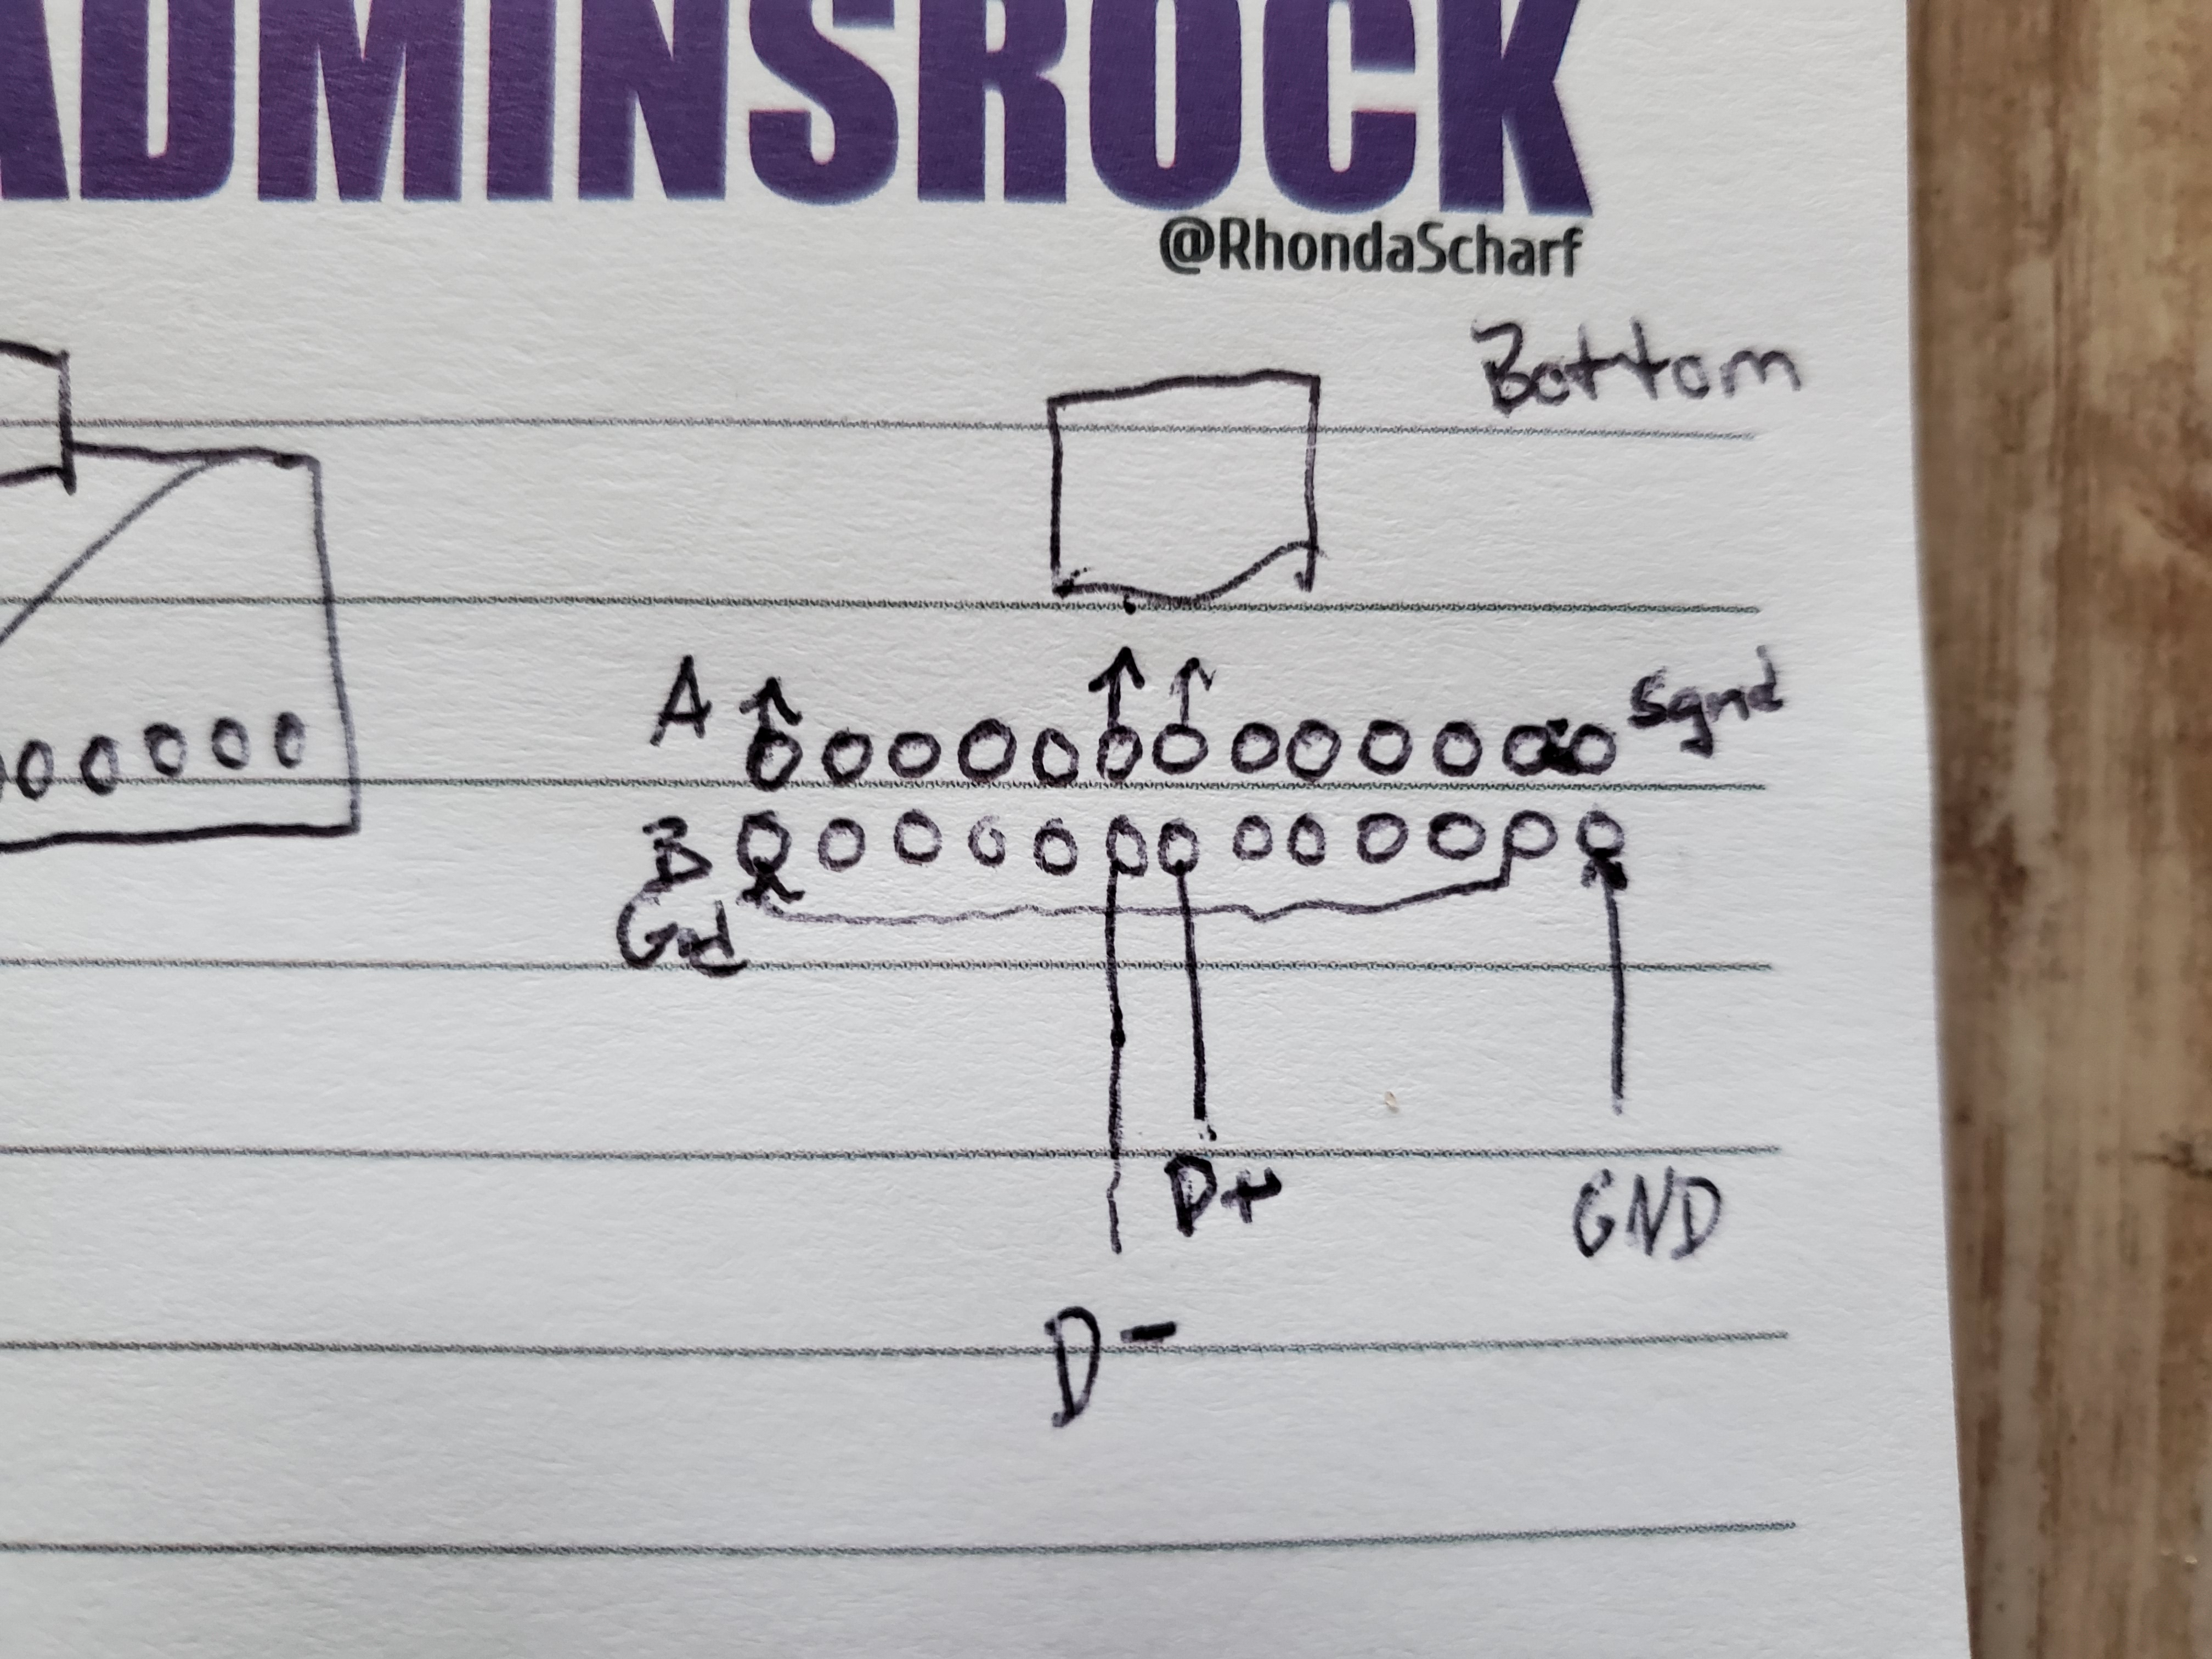 ADMINSROCK
@RhondaScharf
Bottom
A Sgnd
B
Gnd
D+ GND
D-